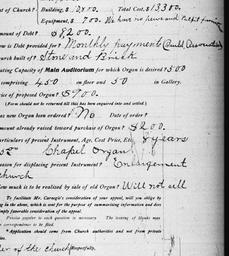 of Church? Building, $12900. Total Cost, $13300.
Equipment, $700. We have no pews and kept
Amount of Debt? $8200.
is Debt provided for? Monthly payments (Build. Association)
Church built of? Stone and Brick
Seating Capacity of Main Auditorium for which Organ is desired? 500
comprising 450 in floor and 50 in Gallery.
Price of proposed Organ? $900.
(Form should not be returned till this has been enquired into and settled)
new Organ been ordered? No. Date of order?
amount already raised toward purchase of Organ? $200.
Particulars of present Instrument, Age, Cost Price, Etc. 8 years
Chapel Organ
Reason for displacing present Instrument? Enlargement
church
How much is to be realized by sale of old Organ? Will not sell
To facilitate Mr. Carnegie's consideration of your appeal, will you be obliging
in the above, which is sent for the purpose of summarizing information and does
imply favorable consideration of the appeal.
Precise replies to each question is necessary. The leaving of blanks may
correspondence to be filed.
Application should come from Church authorities and not from private
of the church Respectfully,